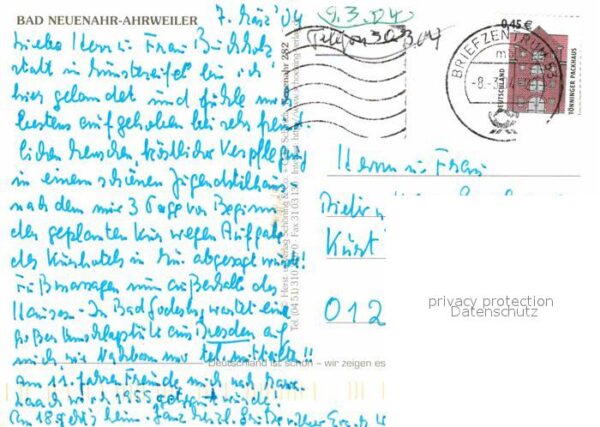 BAD NEUENAHR-AHRWEILER
7. März '04
9.3.04
Telefon 30.3.04
Liebe Herr u. Frau Buchholz
statt in Münstereifel bin ich
hier gelandet und fühle mich
bestens aufgehoben bei sehr freund-
lichen Menschen, köstlicher Verpflegung
in einem schönen Jugendstilhaus
nach dem mir 3 Tage vor Beginn
der geplanten Kur wegen Aufgabe
des Kurhotels in Mü abgesagt wurde!
Fußmassagen nun außerhalb des
Hauses. In Bad Godesberg wartet eine
großen aus Dresden auf
mich wie Nachbarn mir tel. mitteilte!!
Am 11. fahren Freunde mich nach
wo ich 1955 getraut wurde!
Am 18. geht's heim. Ganz herzl. Grüße
0,45 €
BRIEFZENTRUM 53
DEUTSCHLAND
TÖNNINGER PACKHAUS
Herrn u. Frau
012
privacy protection
Datenschutz
Deutschland ist schön – wir zeigen es